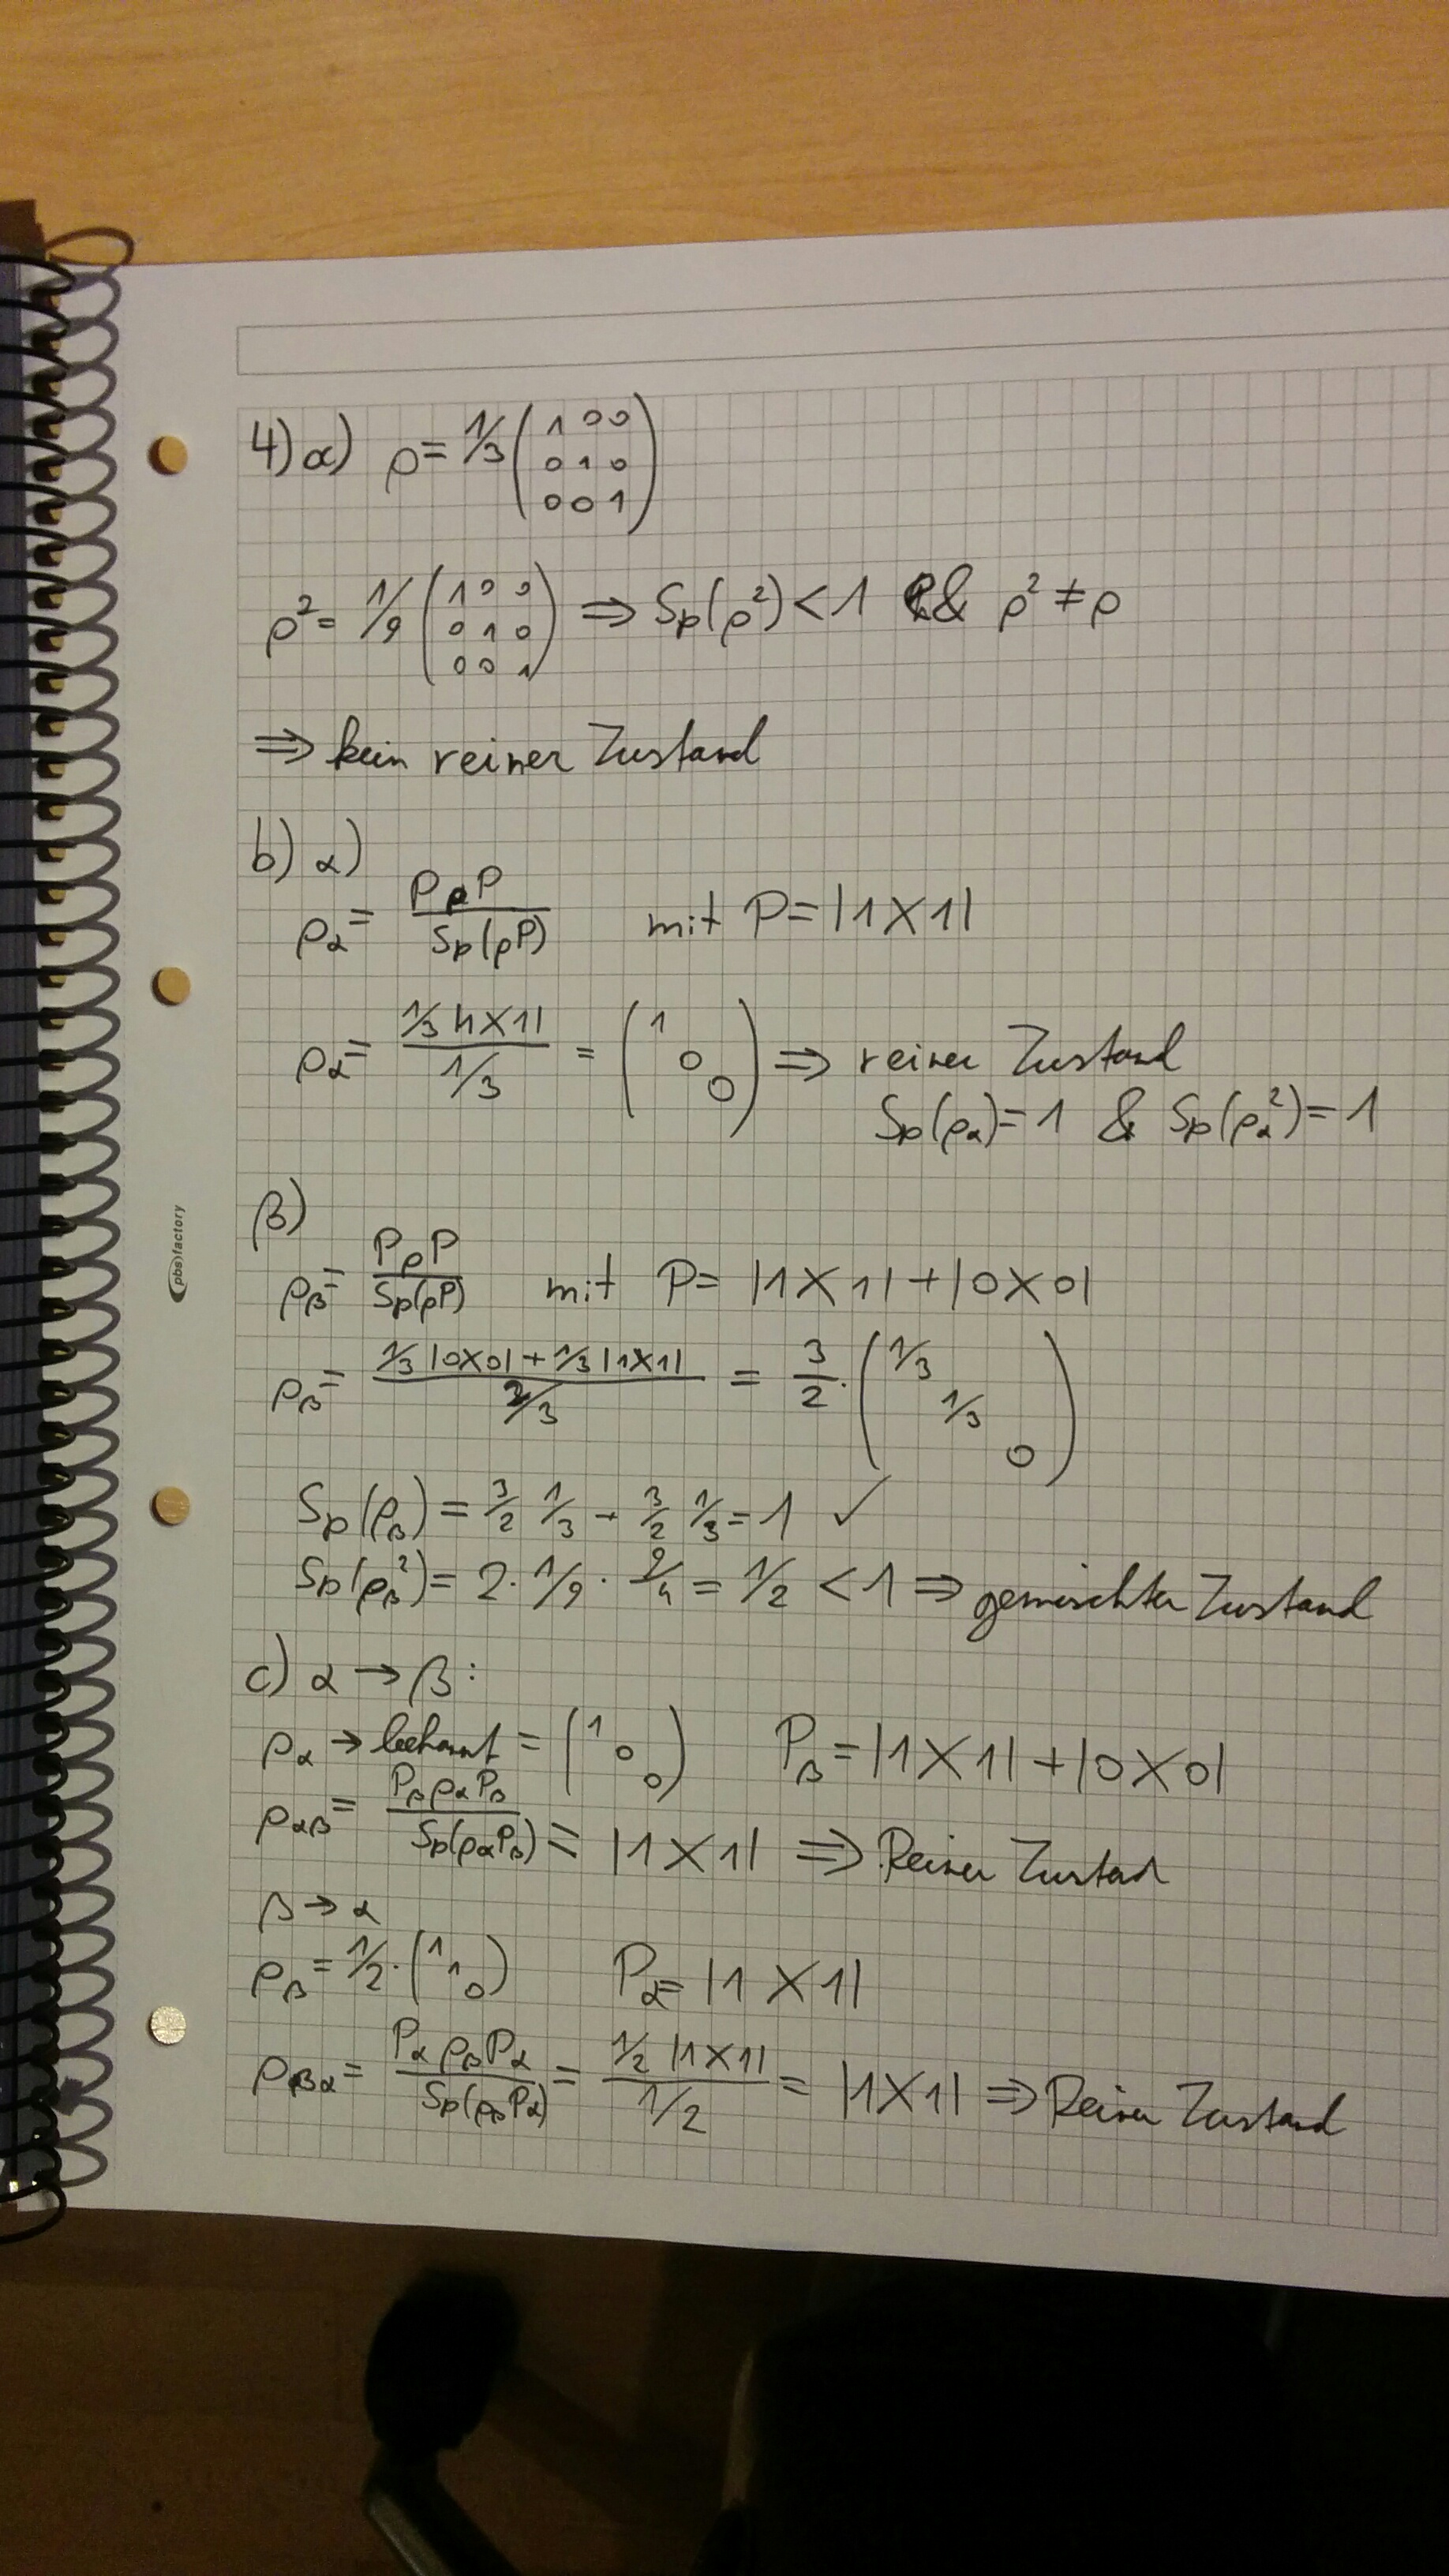 4) a) ρ = 1/3 ( 1 0 0
0 1 0
0 0 1 )
ρ² = 1/9 ( 1 0 0
0 1 0
0 0 1 ) ⇒ Sp(ρ²) < 1 & ρ² ≠ ρ
⇒ kein reiner Zustand
b) α)
ρ_α = PρP / Sp(ρP) mit P = |1X1|
ρ_α = 1/3 |1X1| / 1/3 = ( 1 0 0 ) ⇒ reiner Zustand
Sp(ρ_α) = 1 & Sp(ρ_α²) = 1
pbs factory
β)
ρ_β = PρP / Sp(ρP) mit P = |1X1| + |0X0|
ρ_β = 1/3 |0X0| + 1/3 |1X1| / 2/3 = 3/2 · ( 1/3 1/3 0 )
Sp(ρ_β) = 3/2 1/3 + 3/2 1/3 = 1 ✓
Sp(ρ_β²) = 2 · 1/9 · 9/4 = 1/2 < 1 ⇒ gemischter Zustand
c) α → β :
ρ_α → bekannt = ( 1 0 0 ) P_β = |1X1| + |0X0|
ρ_αβ = P_β ρ_α P_β / Sp(ρ_α P_β) = |1X1| ⇒ Reiner Zustand
β → α
ρ_β = 1/2 · ( 1 1 0 ) P_α = |1X1|
ρ_βα = P_α ρ_β P_α / Sp(ρ_β P_α) = 1/2 |1X1| / 1/2 = |1X1| ⇒ Reiner Zustand